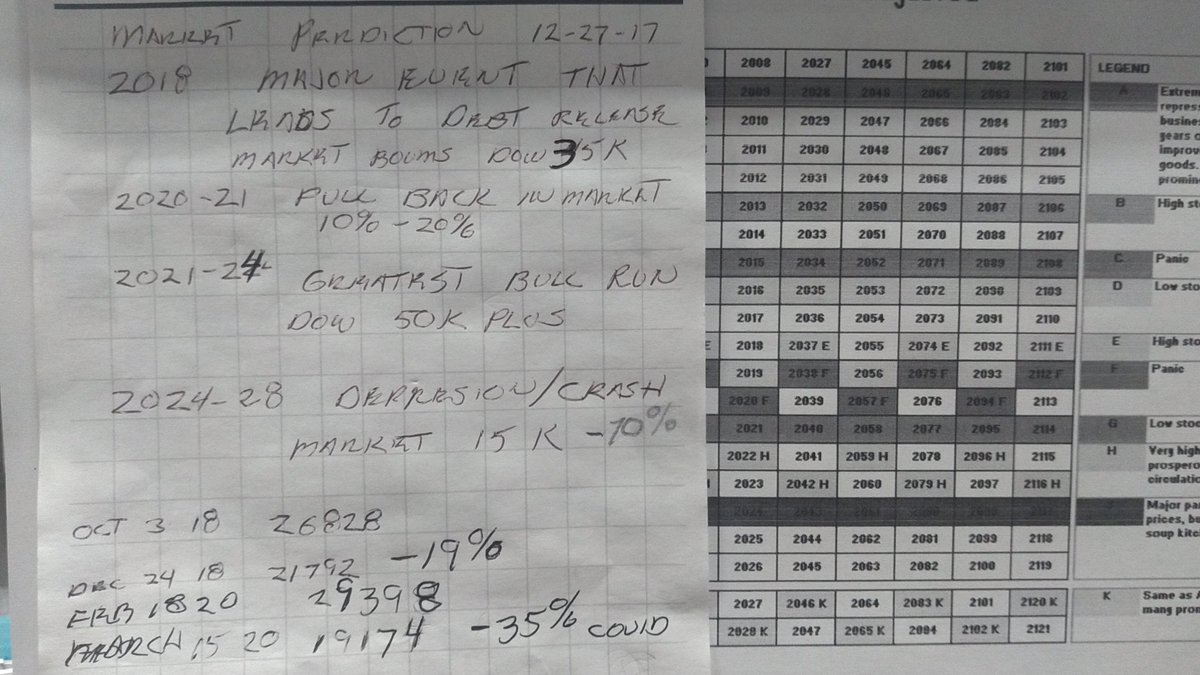 MARKET PREDICTION 12-27-17
2018 MAJOR EVENT THAT
LEADS TO DEBT RELEASE
MARKET BOUMS DOW 35K
2020-21 PULL BACK IN MARKET
10% - 20%
2021-24 GREATEST BULL RUN
DOW 50K PLUS
2024-28 DEPRESION/CRASH
MARKET 15K -70%
OCT 3 18 26828
DEC 24 18 21792 -19%
FEB 18 20 29398
MARCH 15 20 19174 -35% COVID
2008 2027 2045 2064 2082 2101
2009 2028 2046 2065 2083 2102
2010 2029 2047 2066 2084 2103
2011 2030 2048 2067 2085 2104
2012 2031 2049 2068 2086 2105
2013 2032 2050 2069 2087 2106
2014 2033 2051 2070 2088 2107
2015 2034 2052 2071 2089 2108
2016 2035 2053 2072 2090 2109
2017 2036 2054 2073 2091 2110
E 2018 2037 E 2055 2074 E 2092 2111 E
2019 2038 F 2056 2075 F 2093 2112 F
2020 F 2039 2057 F 2076 2094 F 2113
2021 2040 2058 2077 2095 2114
2022 H 2041 2059 H 2078 2096 H 2115
2023 2042 H 2060 2079 H 2097 2116 H
2025 2044 2062 2081 2099 2118
2026 2045 2063 2082 2100 2119
2027 2046 K 2064 2083 K 2101 2120 K
2028 K 2047 2065 K 2084 2102 K 2121
LEGEND
A Extrem
repress
busines
years o
improv
goods.
promin
B High sto
C Panic
D Low sto
E High sto
F Panic
G Low stoc
H Very high
prospero
circulatio
Major pa
prices, bu
soup kitc
K Same as A
mang prom